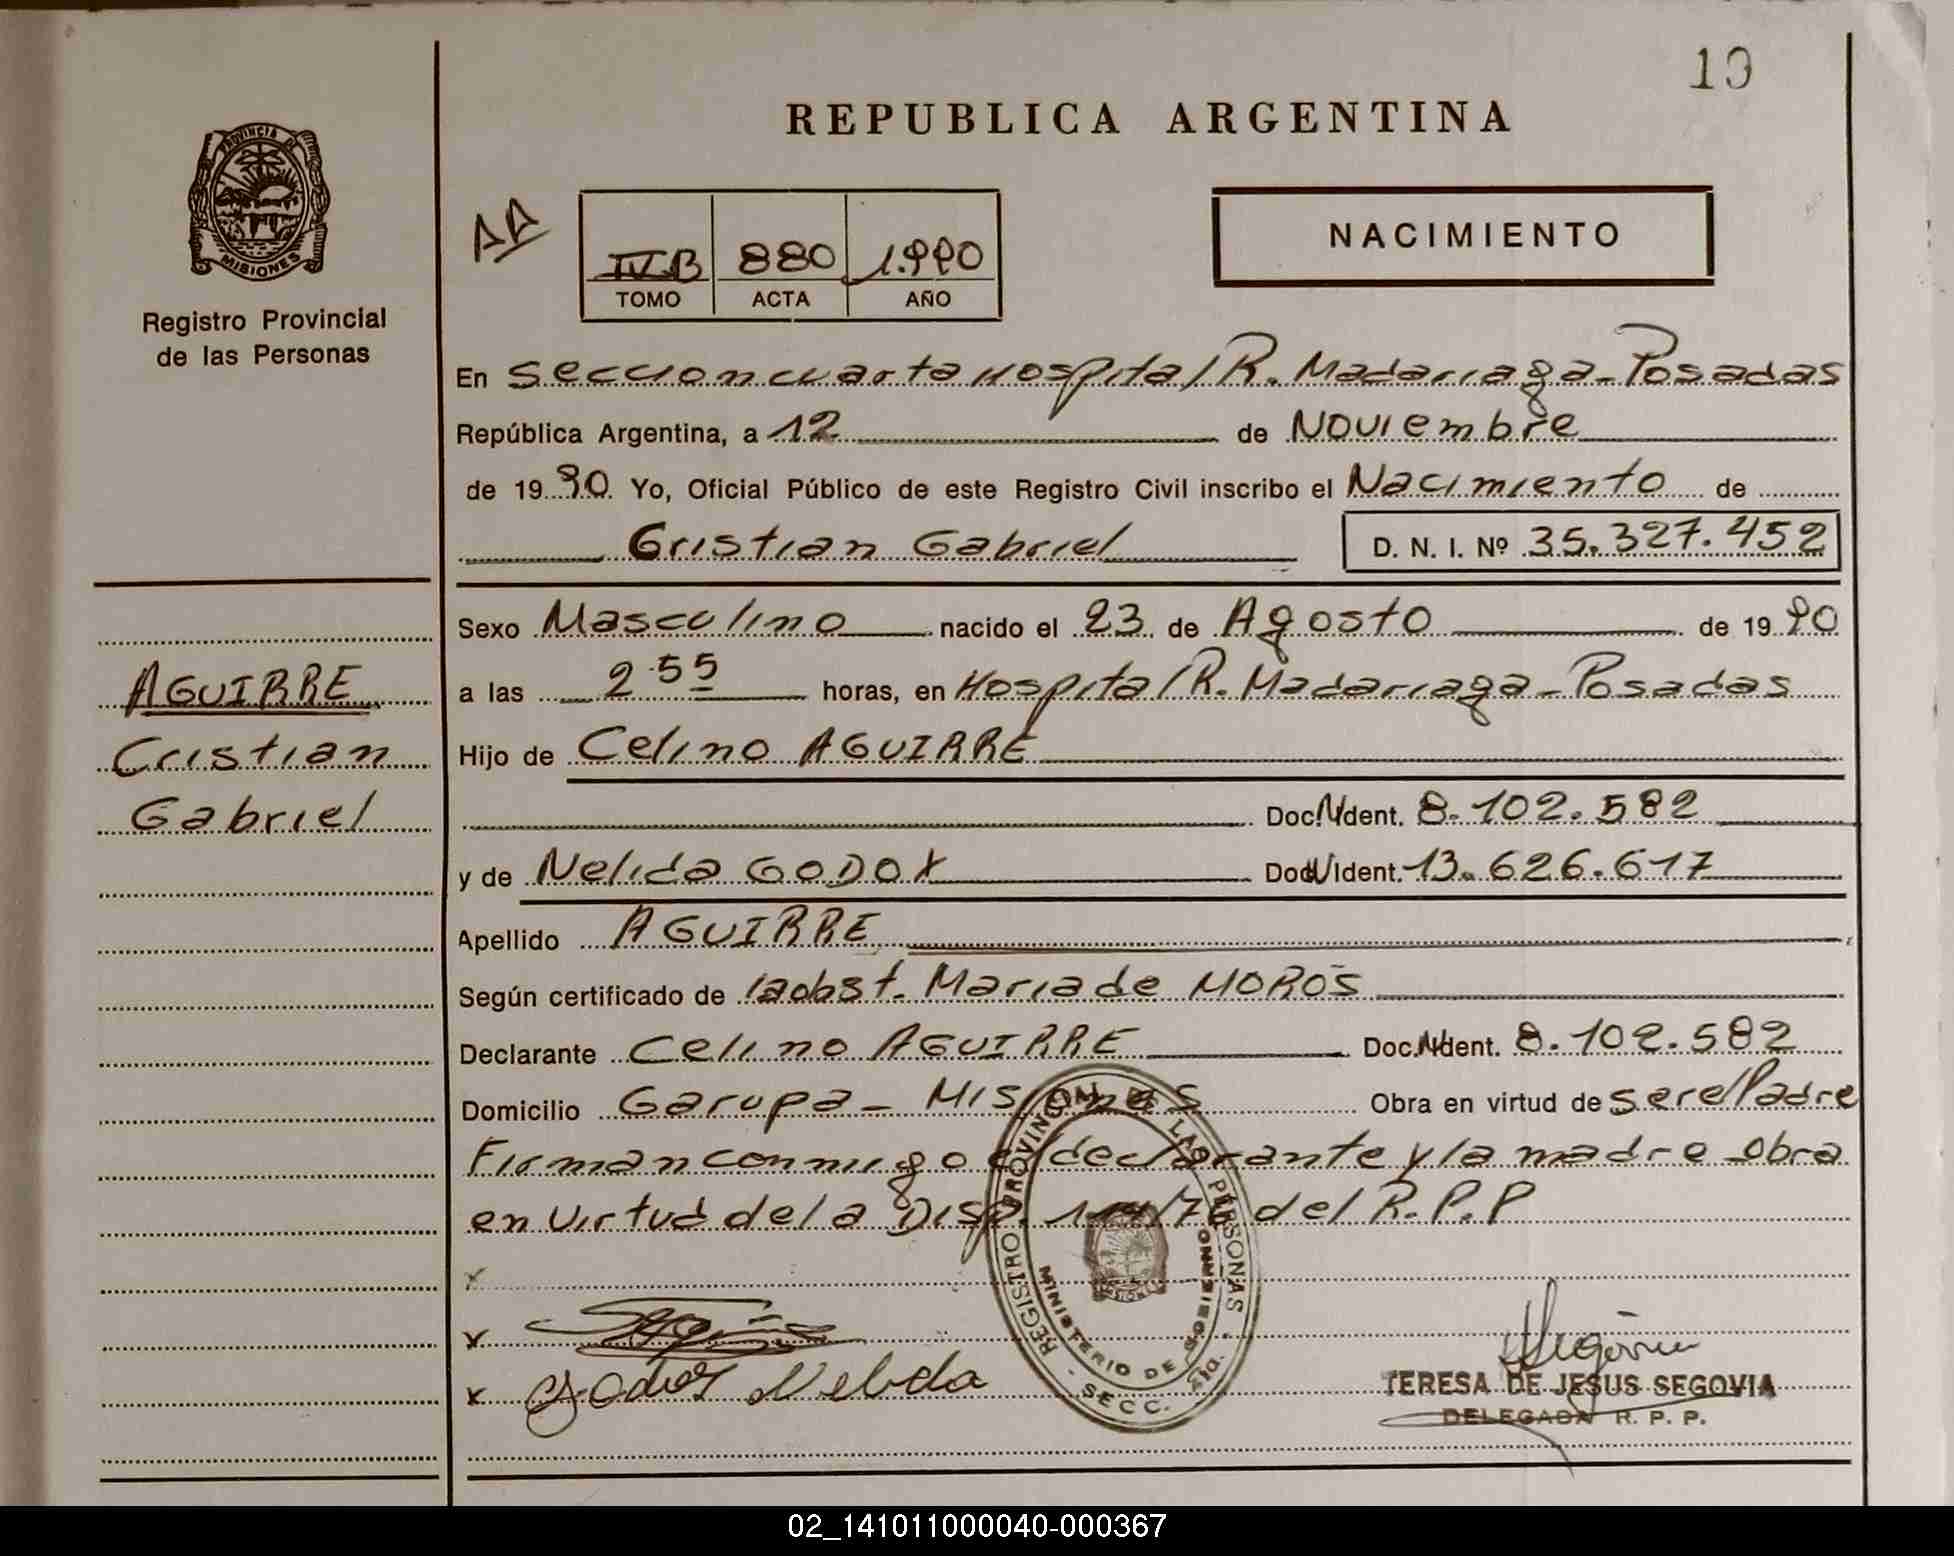 10
REPUBLICA ARGENTINA
PROVINCIA DE
MISIONES
Registro Provincial
de las Personas
AA
IV.B 880 1.990
TOMO ACTA AÑO
NACIMIENTO
En Seccion cuarta Hospital R. Madariaga - Posadas
República Argentina, a 12 de Noviembre
de 1990. Yo, Oficial Público de este Registro Civil inscribo el Nacimiento de
Cristian Gabriel D. N. I. Nº 35.327.452
AGUIRRE
Cristian
Gabriel
Sexo Masculino nacido el 23 de Agosto de 1990
a las 2.55 horas, en Hospital R. Madariaga - Posadas
Hijo de Celino AGUIRRE
Doc. Ident. 8.102.582
y de Nelida GODOY Doc. Ident. 13.626.617
Apellido AGUIRRE
Según certificado de la obst. Maria de MOROS
Declarante Celino AGUIRRE Doc. Ident. 8.102.582
Domicilio Garupa - Misiones Obra en virtud de ser el Padre
Firman conmigo el declarante y la madre Obra
en virtud de la Disp. del R.P.P
x
x
x Godoy Nelida
REGISTRO PROVINCIAL DE LAS PERSONAS
MINISTERIO DE GOBIERNO
SECC. 4ta.
TERESA DE JESUS SEGOVIA
DELEGADA R. P. P.
02_141011000040-000367